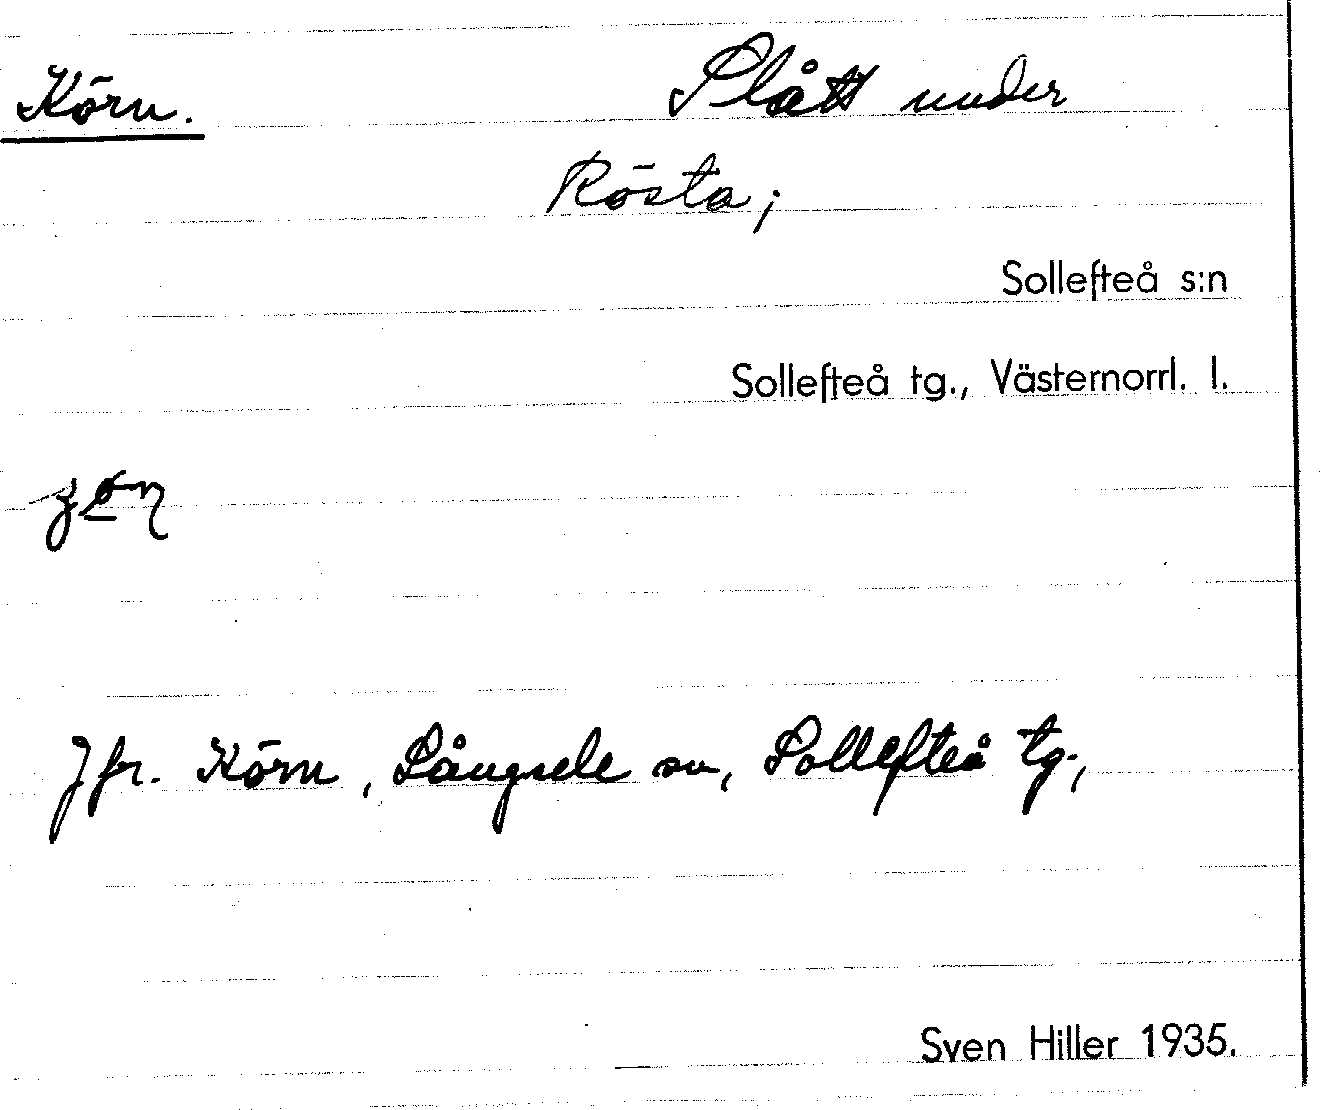 Körn. Slått under
Rösta;
Sollefteå s:n
Sollefteå tg., Västernorrl. l.
Jfr. Körn, Långsele sn, Sollefteå tg.,
Sven Hiller 1935.